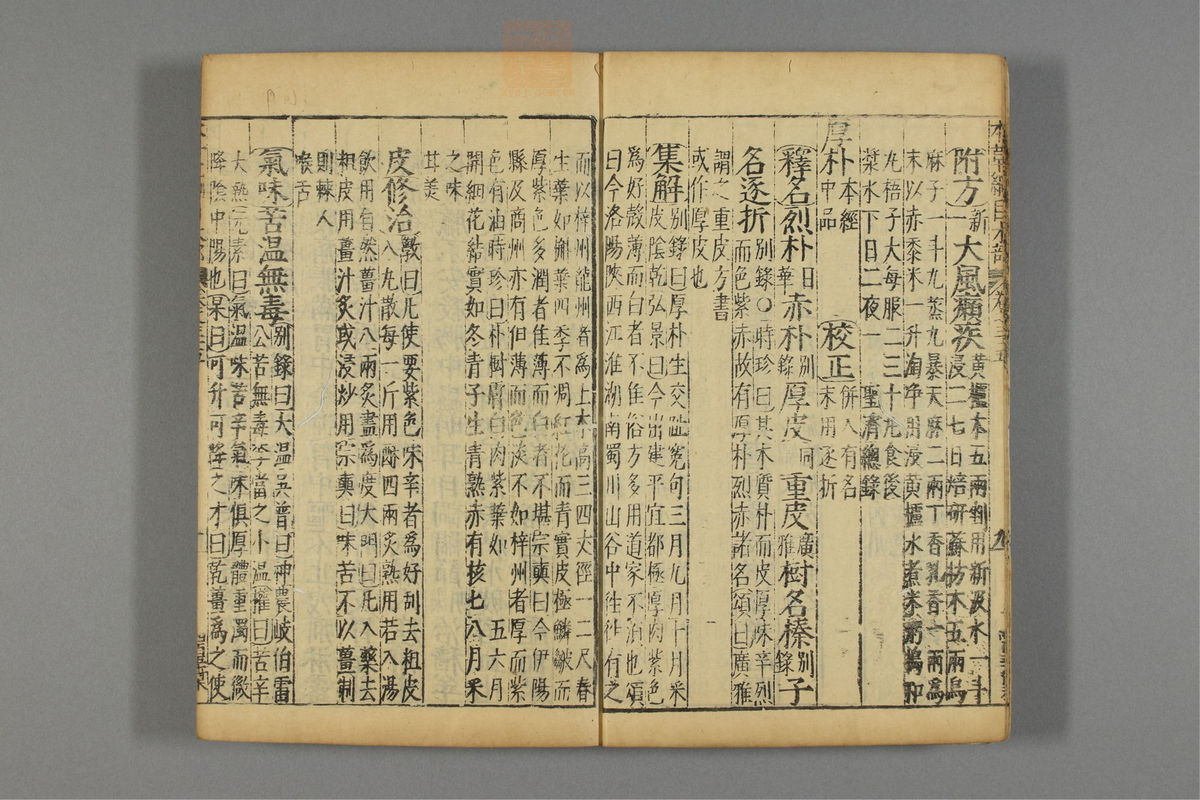 附方新一大風癩疾黃櫨木五兩剉用新汲水一斗
浸二七日焙研蘇枋木五兩烏
麻子一斗九蒸九暴天麻二兩丁香乳香一兩爲
末以赤黍米一升淘净用浸黃櫨水煮米粥搗和
丸梧子大每服二三十丸食後
漿水下日二夜一 聖濟總錄
厚朴本經中品 校正併入有名未用逐折
釋名烈朴日華赤朴別錄厚皮同重皮廣雅樹名榛別錄子
名逐折別錄〇時珍曰其木質朴而皮厚味辛烈
而色紫赤故有厚朴烈赤諸名頌曰廣雅
謂之重皮方書
或作厚皮也
集解別錄曰厚朴生交趾冤句三月九月十月采
皮陰乾弘景曰今出建平宜都極厚肉紫色
爲好殼薄而白者不佳俗方多用道家不須也頌
曰今洛陽陝西江淮湖南蜀川山谷中往往有之
而以梓州龍州者爲上木高三四丈徑一二尺春
生葉如槲葉四季不凋紅花而青實皮極鱗皺而
厚紫色多潤者佳薄而白者不堪宗奭曰今伊陽
縣及商州亦有但薄而色淡不如梓州者厚而紫
色有油時珍曰朴樹膚白肉紫葉如 五六月
開細花結實如冬青子生青熟赤有核七八月采
之味
甘美
皮修治斅曰凡使要紫色味辛者爲好刮去粗皮
入丸散每一斤用酥四兩炙熟用若入湯
飲用自然薑汁八兩炙盡爲度大明曰凡入藥去
粗皮用薑汁炙或浸炒用宗奭曰味苦不以薑制
則棘人
喉舌
氣味苦温無毒別錄曰大温吳普曰神農岐伯雷
公苦無毒李當之小温權曰苦辛
大熱元素曰氣温味苦辛氣味俱厚體重濁而微
降陰中陽也杲曰可升可降之才曰乾薑爲之使